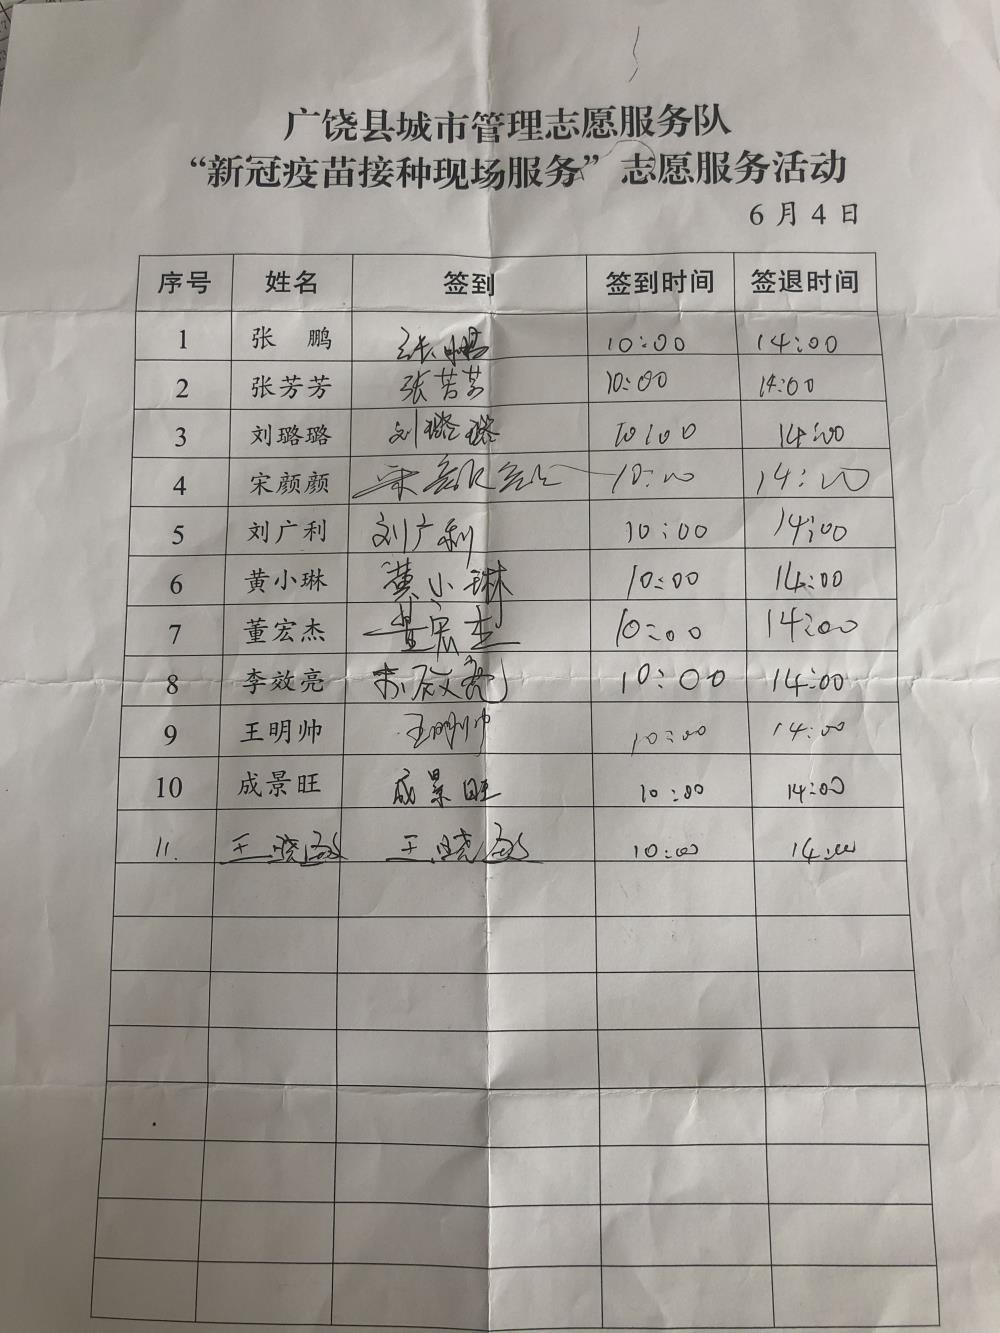 广饶县城市管理志愿服务队
“新冠疫苗接种现场服务”志愿服务活动
6月4日
序号 姓名 签到 签到时间 签退时间
1 张 鹏 张鹏 10:00 14:00
2 张芳芳 张芳芳 10:00 14:00
3 刘璐璐 刘璐璐 10:00 14:00
4 宋颜颜 宋颜颜 10:00 14:00
5 刘广利 刘广利 10:00 14:00
6 黄小琳 黄小琳 10:00 14:00
7 董宏杰 董宏杰 10:00 14:00
8 李效亮 李效亮 10:00 14:00
9 王明帅 王明帅 10:00 14:00
10 成景旺 成景旺 10:00 14:00
11. 王晓 王晓 10:00 14:00